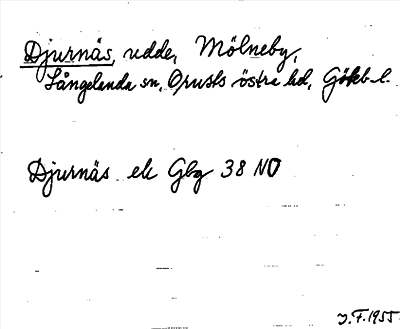 Djurnäs, udde, Mölneby,
Långelanda sn, Orusts östra hd, Göteb. l.
Djurnäs ek Gbg 38 NO
J.F. 1955